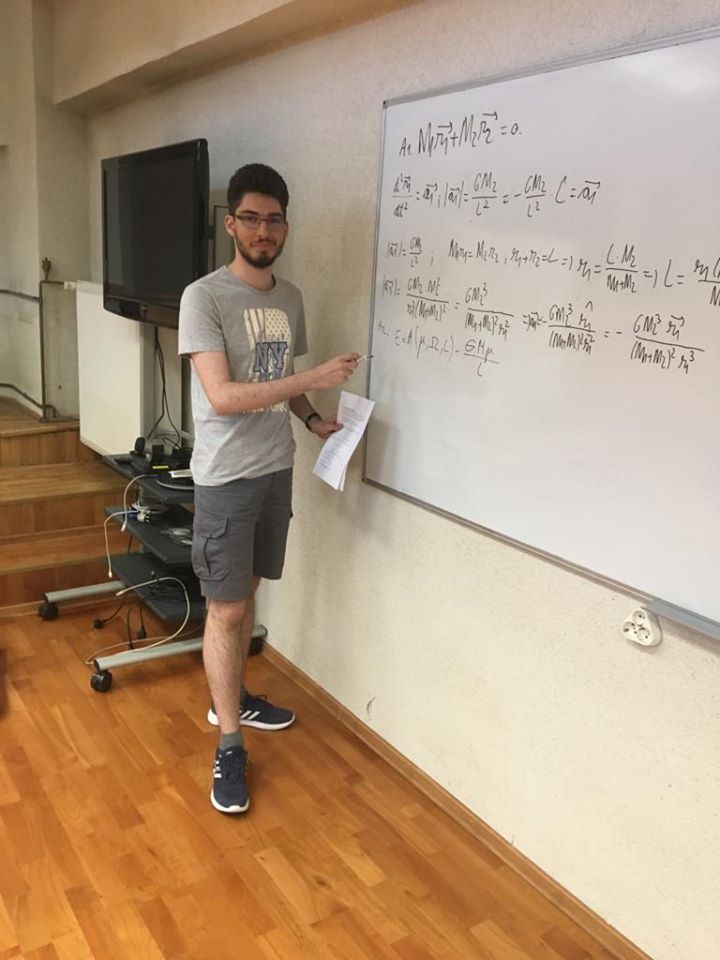 NY
A1. M₁r₁⃗ + M₂r₂⃗ = 0.
d²r₁⃗/dt² = a₁⃗ ; |a₁⃗| = GM₂/L² = - GM₂/L² L̂ = a₁⃗
|a₁⃗| = GM₂/L² ; M₁r₁ = M₂r₂ ; r₁ + r₂ = L => r₁ = L·M₂/(M₁+M₂) => L =
|a₁⃗| = GM₂ M₂²/(r₁²(M₁+M₂)²) = GM₂³/((M₁+M₂)² r₁²) => a₁⃗ = - GM₂³ r̂₁/((M₁+M₂)² r₁²) = - GM₂³ r₁⃗/((M₁+M₂)² r₁³)
A2. E = A(μ, Ω, L) - GMμ/L